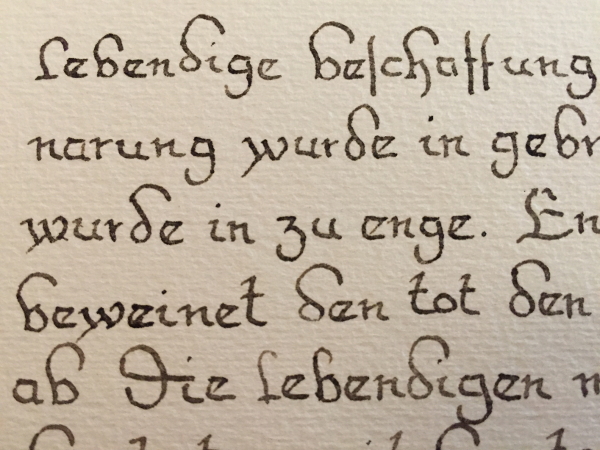 Lebendige beschaffung
narung wurde in gebr
wurde in zu enge. En
beweinet den tot den
ab Die Lebendigen